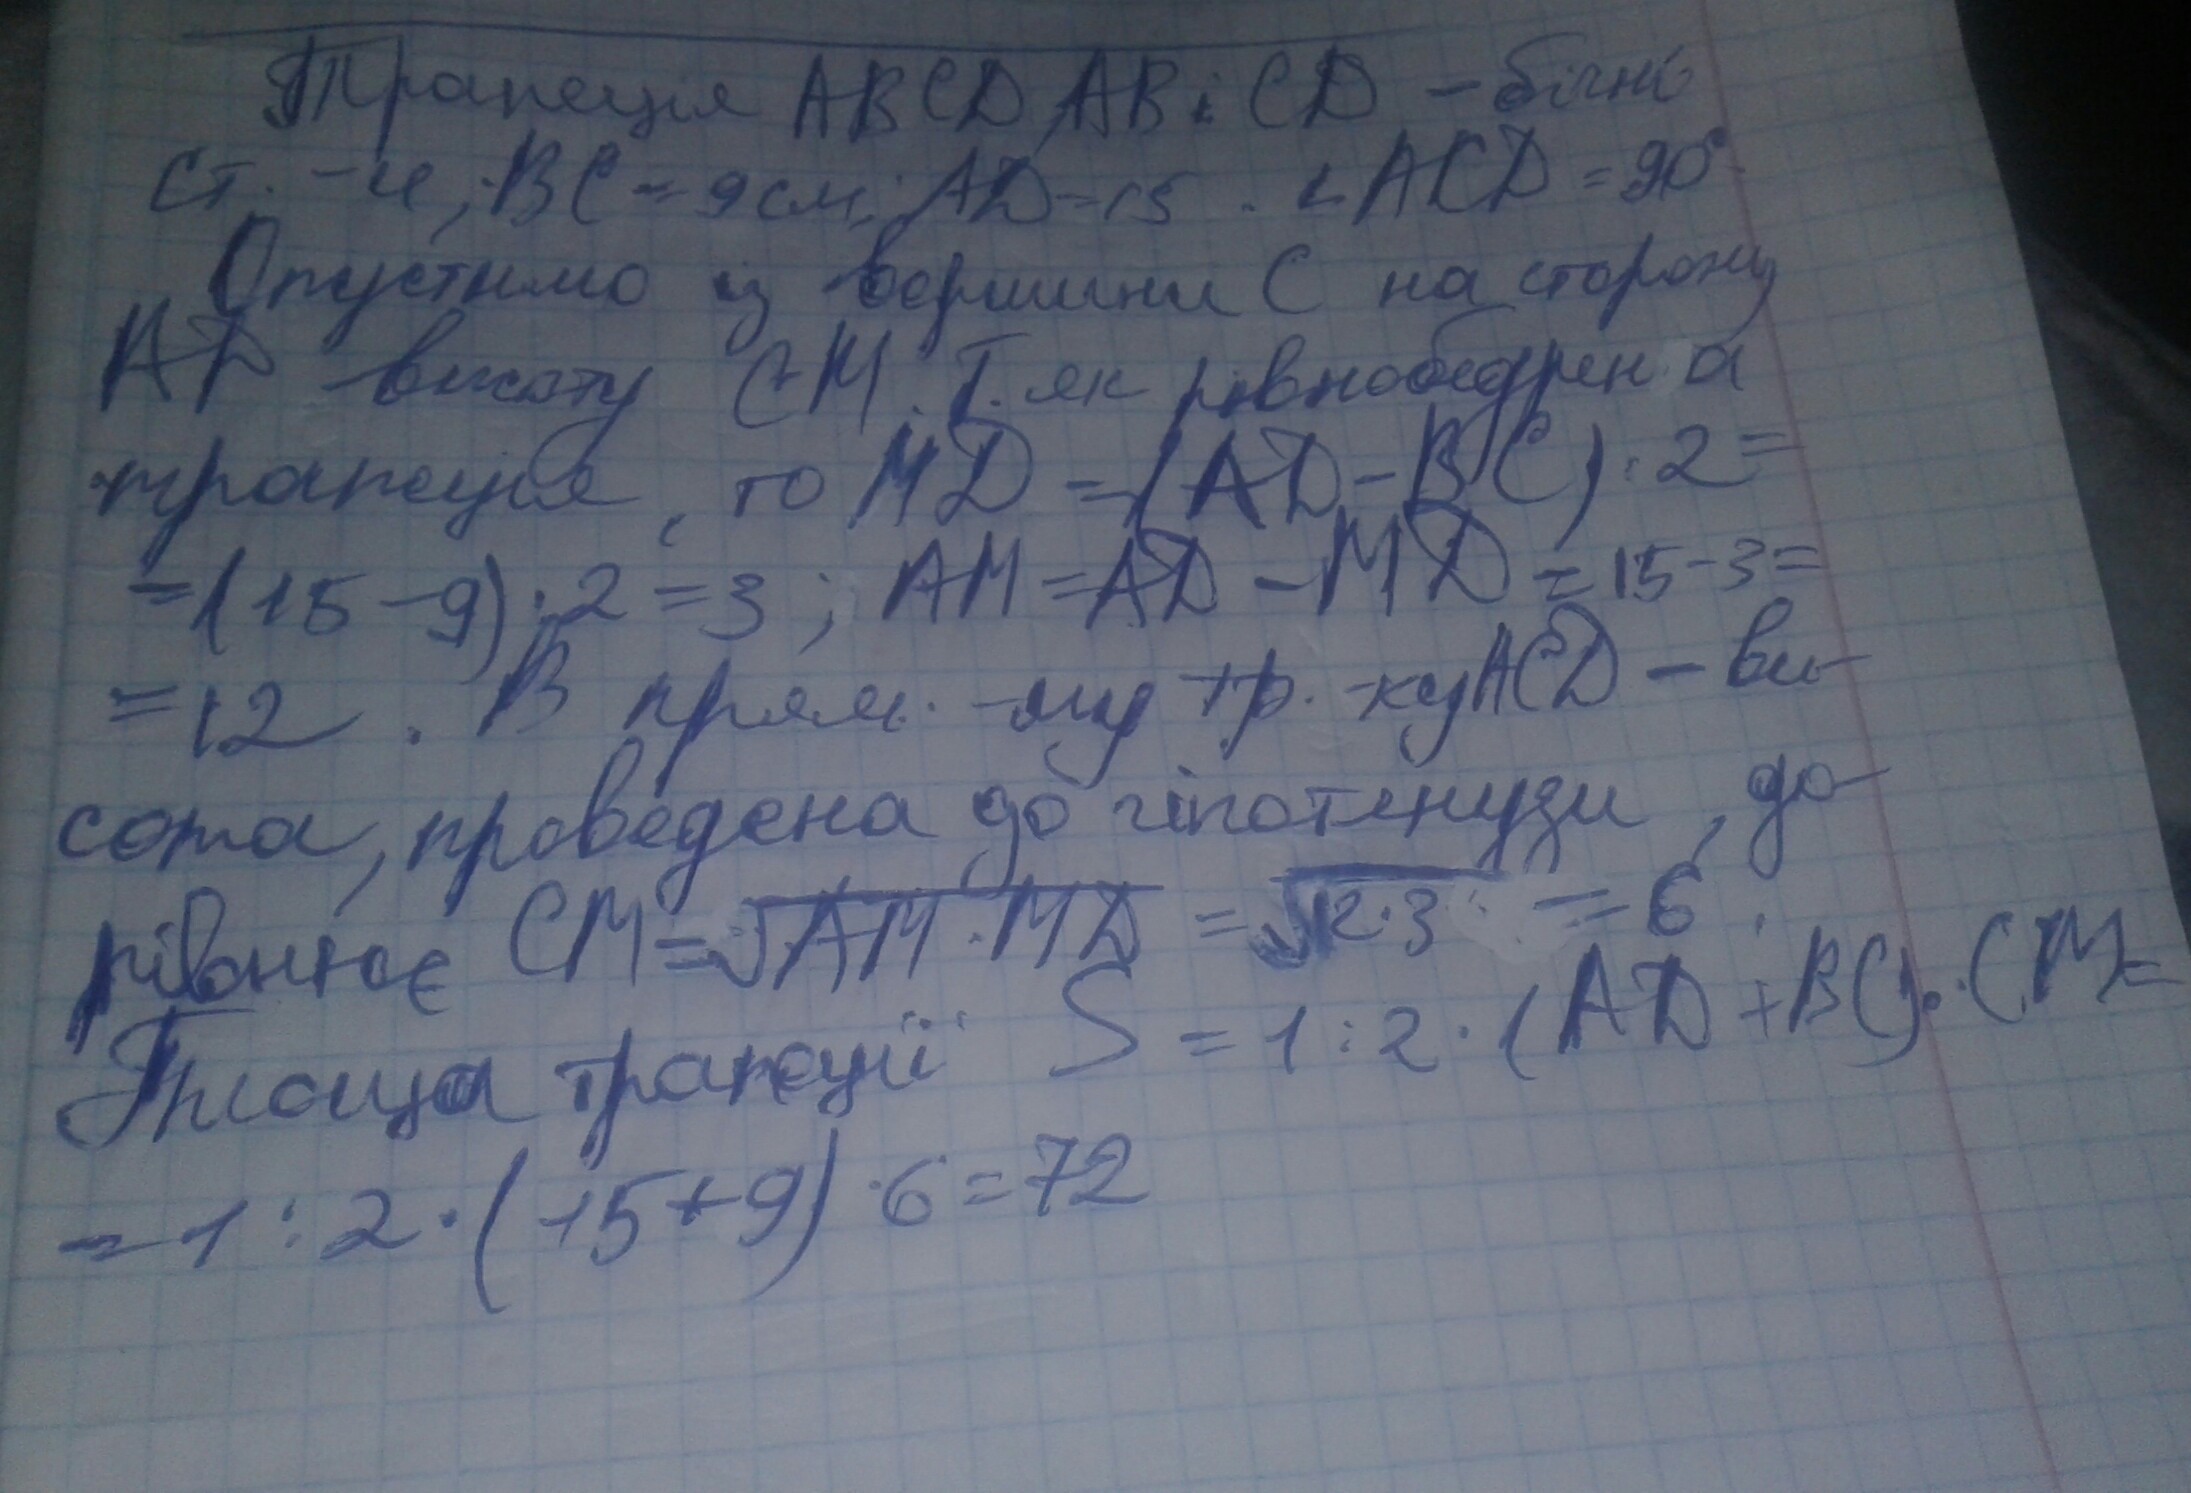 Трапеція ABCD, AB і CD – бічні
ст. -и, BC = 9 см; AD = 15. ∠ACD = 90°
Опустимо із вершини C на сторону
AD висоту CM. Т. як рівнобедрена
трапеція, то MD = (AD - BC) : 2 =
= (15 - 9) : 2 = 3; AM = AD - MD = 15 - 3 =
= 12. В прям. -му тр. -ку ACD – ви-
сота, проведена до гіпотенузи, до-
рівнює CM = √AM · MD = √12 · 3 = 6.
Площа трапеції S = 1 : 2 · (AD + BC) · CM =
= 1 : 2 · (15 + 9) · 6 = 72